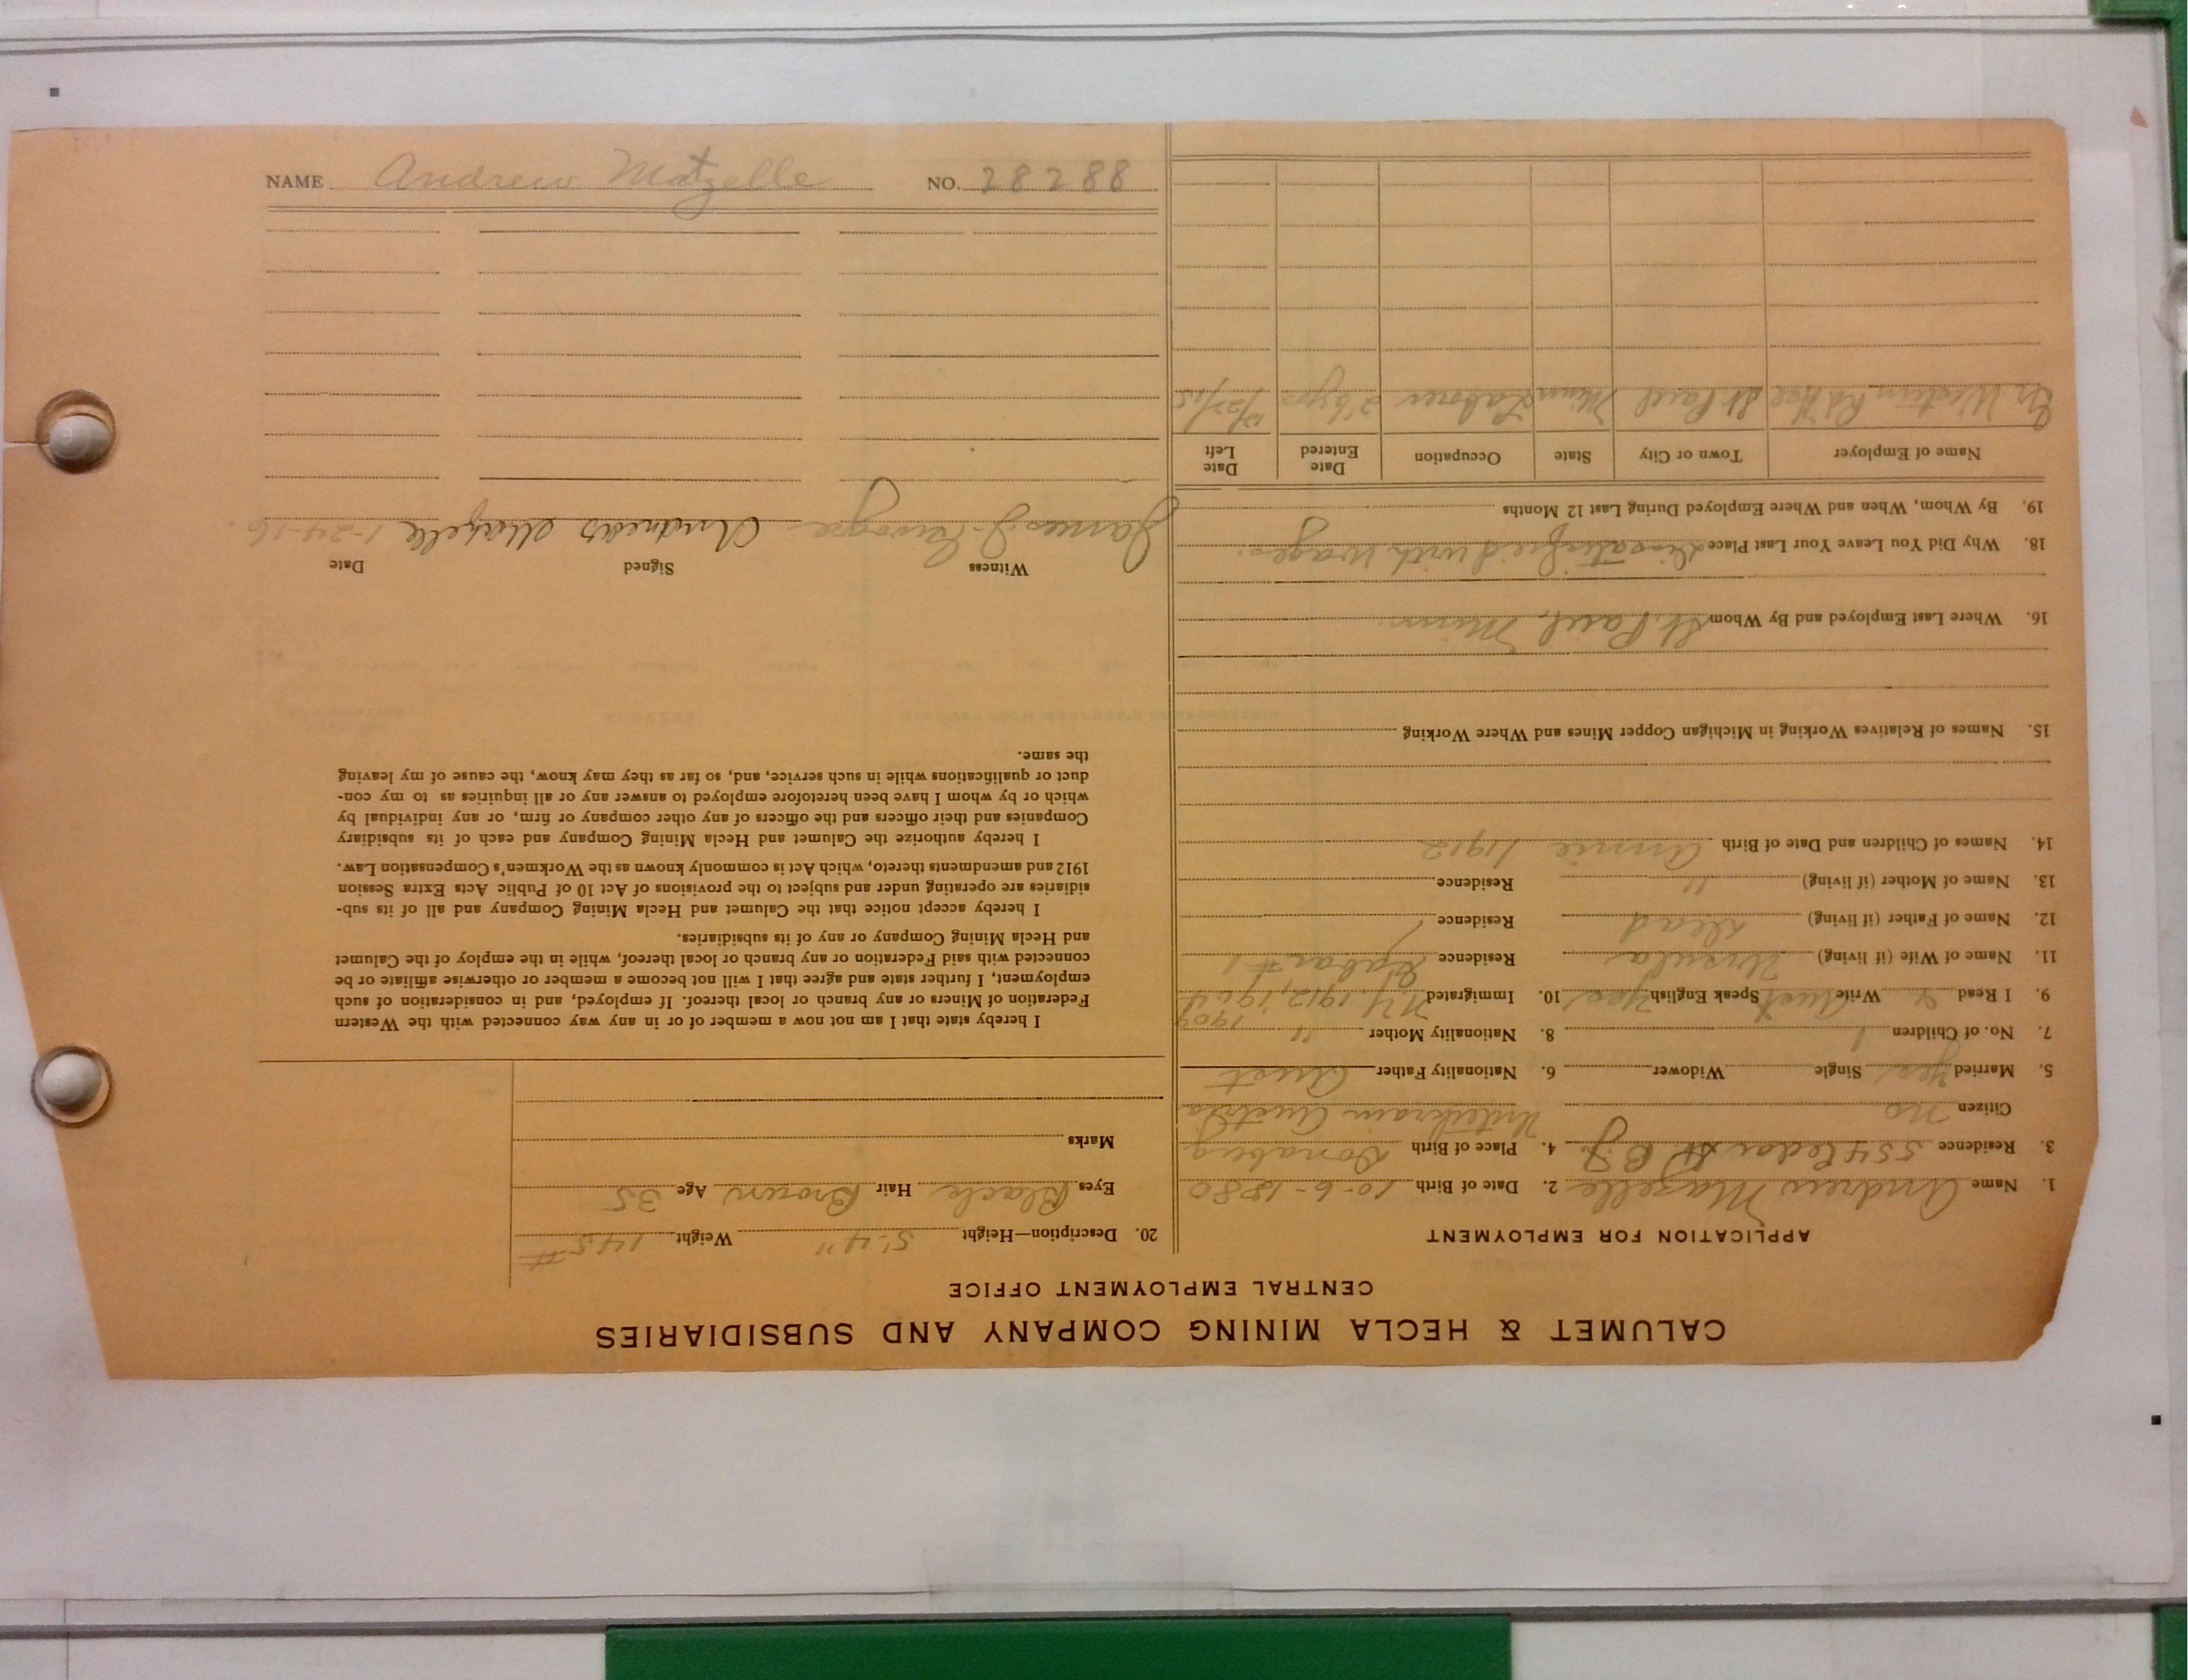 NAME Andrew Matzelle NO. 28288
CALUMET & HECLA MINING COMPANY AND SUBSIDIARIES
CENTRAL EMPLOYMENT OFFICE
APPLICATION FOR EMPLOYMENT
1. Name Andrew Mazelle 2. Date of Birth 10-6-1880
3. Residence 554 Cedar St. 4. Place of Birth
Citizen no Austria
5. Married Yes Single Widower 6. Nationality Father Aust
7. No. of Children 1 8. Nationality Mother "
1909
9. I Read Write Speak English Yes 10. Immigrated N.Y. 1912, 1904
11. Name of Wife (if living) Ursula Residence
12. Name of Father (if living) dead Residence
13. Name of Mother (if living) " Residence
14. Names of Children and Date of Birth Annie 1912
15. Names of Relatives Working in Michigan Copper Mines and Where Working
16. Where Last Employed and By Whom St. Paul, Minn.
18. Why Did You Leave Your Last Place Dissatisfied with wages.
19. By Whom, When and Where Employed During Last 12 Months
Name of Employer Town or City State Occupation Date Entered Date Left
Western St. Paul Minn Laborer
20. Description—Height 5'-4" Weight 145#
Eyes Black Hair Brown Age 35
Marks
I hereby state that I am not now a member of or in any way connected with the Western
Federation of Miners or any branch or local thereof. If employed, and in consideration of such
employment, I further state and agree that I will not become a member or otherwise affiliate or be
connected with said Federation or any branch or local thereof, while in the employ of the Calumet
and Hecla Mining Company or any of its subsidiaries.
I hereby accept notice that the Calumet and Hecla Mining Company and all of its sub-
sidiaries are operating under and subject to the provisions of Act 10 of Public Acts Extra Session
1912 and amendments thereto, which Act is commonly known as the Workmen's Compensation Law.
I hereby authorize the Calumet and Hecla Mining Company and each of its subsidiary
Companies and their officers and the officers of any other company or firm, or any individual by
which or by whom I have been heretofore employed to answer any or all inquiries as to my con-
duct or qualifications while in such service, and, so far as they may know, the cause of my leaving
the same.
Witness Signed Date
James J. Mazelle 1-24-16.